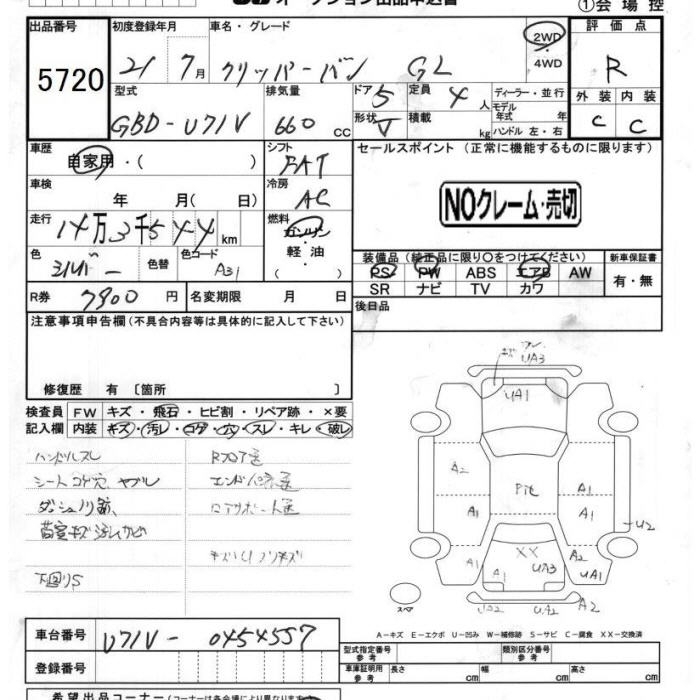 オークション出品申込書
①会場控
出品番号
5720
初度登録年月
21 7月
車名・グレード
クリッパーバン GL
2WD
・4WD
評価点
R
型式
GBD-U71V
排気量
660 cc
ドア 5
定員 4 人
形状 V
積載 kg
ディーラー・並行
モデル年式 年
ハンドル 左・右
外装 内装
C C
車歴
自家用・( )
シフト
FAT
セールスポイント (正常に機能するものに限ります)
車検
年 月( 日)
冷房
AC
NOクレーム・売切
走行
14万3千544km
燃料
ガソリン
軽・油
色
シルバー
色替
色コード
A31
装備品(純正品に限り〇をつけてください)
新車保証書
PS PW ABS エアB AW
SR ナビ TV カワ
有・無
R券
7900円
名変期限 月 日
後日品
注意事項申告欄(不具合内容等は具体的に記入して下さい)
修復歴 有 [箇所 ]
検査員
記入欄
FW キズ・飛石・ヒビ割・リペア跡・×要
内装 キズ・汚レ・コゲ・穴・スレ・キレ・破レ
ハンドルスレ
シートコゲ穴 ヤブレ
下回りS
キズ
UA3
UA1
A2
A1
Pie
A1
A1
A1
U2
XX
A1
A1
UA3
A2
UA1
UA2
A2
スペア
A-キズ E-エクボ U-凹み W-補修跡 S-サビ C-腐食 XX-交換済
車台番号
U71V-0454557
登録番号
型式指定番号
参考
類別区分番号
参考
車庫証明用
参考
長さ cm
幅 cm
高さ cm
希望出品コーナー